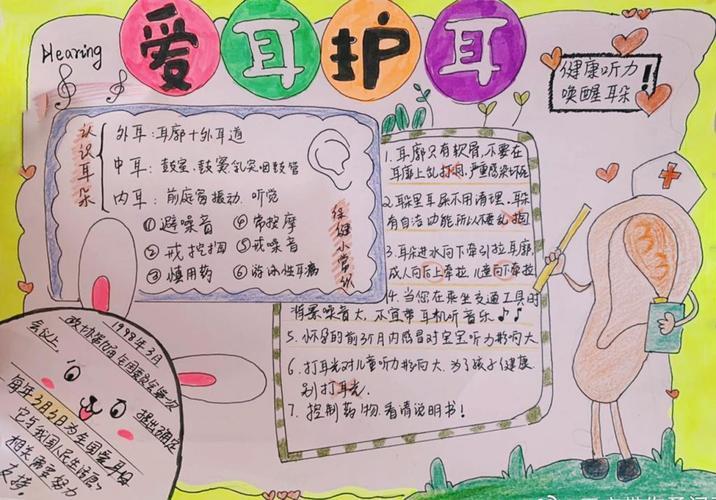 爱耳护耳
Hearing
健康听力
唤醒耳朵!
认识耳朵
外耳:耳廓+外耳道
中耳:鼓室、鼓窦、乳突咽鼓管
内耳:前庭窗振动、听觉
保健小常识
①避噪音 ④常按摩
②戒挖掏 ⑤戒噪音
③慎用药 ⑥游泳性耳病
1.耳廓只有软骨,不要在
耳廓上乱打洞,严重感染
2.耳朵里耳屎不用清理,耳朵
有自洁功能,所以不要乱掏
3.耳朵进水向下牵引拉耳廓,
成人向后上牵拉,儿童向下牵拉
4.当您在乘坐交通工具时
背景噪音大,不宜带耳机听音乐♪♪
5.怀孕的前3个月内感冒对宝宝听力影响大
6.打耳光对儿童听力影响大,为了孩子健康,
别打耳光.
7.控制药物,看清说明书!
1998年3月
政协第九届全国委员会第一次
会议上,
提出确定
每年3月3日为全国爱耳日